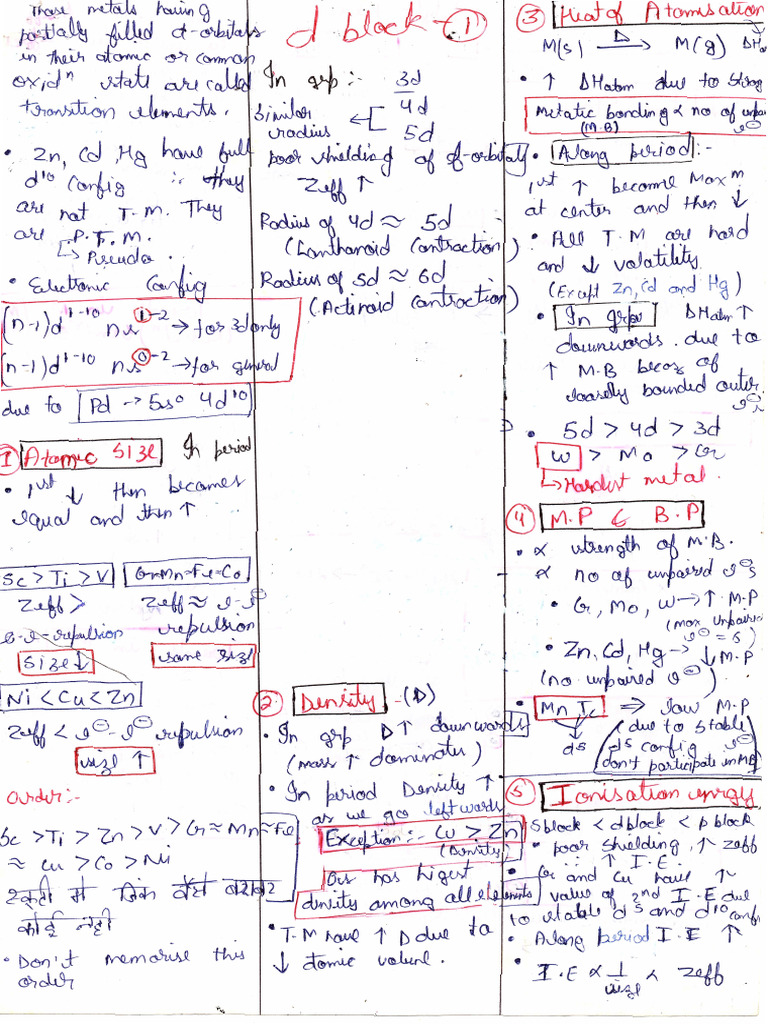 Those metals having
partially filled d-orbitals
in their atomic or common
oxidⁿ state are called
transition elements.
• Zn, Cd Hg have full
d¹⁰ config ∴ they
are not T.M. They
are P.T.M.
↳ Pseudo.
• Electronic config
(n-1)d¹⁻¹⁰ ns¹⁻² → for 3d only
(n-1)d¹⁻¹⁰ ns⁰⁻² → for general
due to Pd → 5s⁰ 4d¹⁰
① Atomic Size In period
• 1st ↓ then becomes
equal and then ↑
Sc > Ti > V
Zeff >
e-e-repulsion
Size ↓
Cr≈Mn≈Fe≈Co
Zeff ≈ e-e⊖
repulsion
same size
Ni < Cu < Zn
Zeff < e⊖-e⊖ repulsion
size ↑
Order:-
Sc > Ti > Zn > V > Cr ≈ Mn ≈ Fe
≈ Cu > Co > Ni
कोई नहीं
• Don't memorise this
order
d block - ①
In grp :-
3d
4d
5d
Similar
radius
poor shielding of f-orbitals
Zeff ↑
Radius of 4d ≈ 5d
(Lanthanoid Contraction)
Radius of 5d ≈ 6d
(Actinoid contraction)
② Density - (D)
• In grp D ↑ downwards
(mass ↑ dominates)
• In period Density ↑
as we go left wards
Exception :- Cu > Zn
(Density)
Os has higest
density among all elements
• T.M have ↑ D due to
↓ atomic volume.
③ Heat of Atomisation
M(s) →Δ M(g)
• ↑ ΔHatom due to
Metallic bonding ∝ no of
(M.B) e⊖
• Along period :-
1st ↑ become Maxm
at center and then ↓
• All T.M are hard
and ↓ volatility.
(Except Zn, Cd and Hg)
• In grp ΔHatm ↑
downwords. due to
↑ M.B becoz of
loosely bounded outer
e⊖
• 5d > 4d > 3d
W > Mo > Cr
↳ Hardest metal.
④ M.P & B.P
• ∝ strength of M.B.
∝ no of unpaired e⊖s
• Cr, Mo, W → ↑ M.P
(max unpaired
e⊖ = 6)
• Zn, Cd, Hg → ↓ M.P
(no unpaired e⊖)
• Mn Tc ⇒ low M.P
d⁵
(due to stable
d⁵ config e⊖
don't participate in MB)
⑤ Ionisation energy
S block < d block < p block
• poor shielding, ↑ Zeff
∴ ↑ I.E.
• Cr and Cu have ↑
value of 2nd I.E due
to stable d⁵ and d¹⁰ config
• Along period I.E ↑
• I.E ∝ 1/size ∝ Zeff